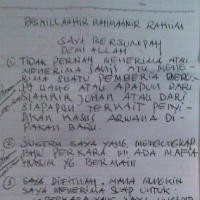 BISMILLAAHIR RAHMAANIR RAHIIM
SAYA BERSUMPAH
DEMI ALLAH
① TIDAK PERNAH MENERIMA ATAU
MENERIMA JANJI ATAU MENE-
RIMA SUATU PEMBERIAN BERU-
PA UANG ATAU APAPUN DARI
SJAHRIL JOHAN ATAU DARI
SIAPAPUN TERKAIT PENYI-
DIKAN KASUS ARWANA DI
PAKAN BARU.
② JUSTRU SAYA YANG MENGUNGKAP
BAHWA PERKARA INI ADA MAFIA
HUKUM YG BERMAIN
③ SAYA DIFITNAH, MANA MUNGKIN
SAYA MENERIMA SUAP UNTUK
PERKARA YANG SAYA